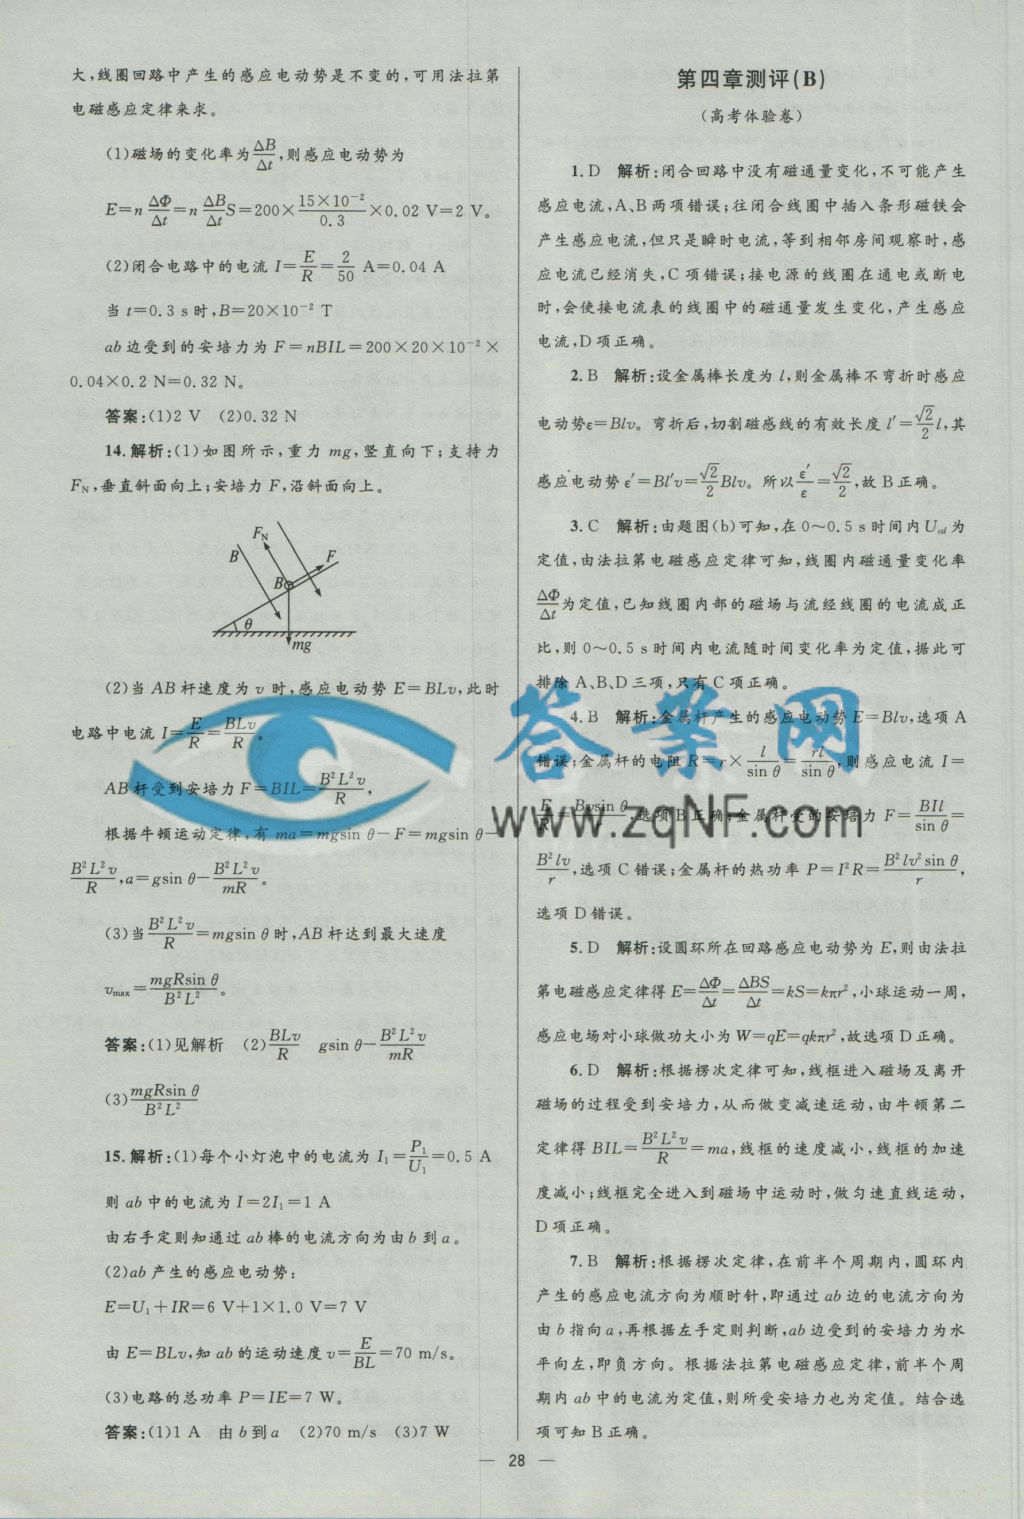 大,线圈回路中产生的感应电动势是不变的,可用法拉第
电磁感应定律来求。
(1)磁场的变化率为ΔB/Δt,则感应电动势为
E=n ΔΦ/Δt=n ΔB/Δt S=200×15×10⁻²/0.3×0.02 V=2 V。
(2)闭合电路中的电流 I=E/R=2/50 A=0.04 A
当 t=0.3 s 时,B=20×10⁻² T
ab边受到的安培力为 F=nBIL=200×20×10⁻²×
0.04×0.2 N=0.32 N。
答案:(1)2 V (2)0.32 N
14.解析:(1)如图所示,重力 mg,竖直向下;支持力
F_N,垂直斜面向上;安培力 F,沿斜面向上。
F_N
B
F
B
θ
mg
(2)当 AB 杆速度为 v 时,感应电动势 E=BLv,此时
电路中电流 I=E/R=BLv/R。
AB 杆受到安培力 F=BIL=B²L²v/R,
根据牛顿运动定律,有 ma=mgsin θ-F=mgsin θ-
B²L²v/R,a=gsin θ-B²L²v/mR。
(3)当B²L²v/R=mgsin θ时,AB杆达到最大速度
v_max=mgRsin θ/B²L²。
答案:(1)见解析 (2)BLv/R gsin θ-B²L²v/mR
(3)mgRsin θ/B²L²
15.解析:(1)每个小灯泡中的电流为 I₁=P₁/U₁=0.5 A
则 ab 中的电流为 I=2I₁=1 A
由右手定则知通过 ab 棒的电流方向为由 b 到 a。
(2)ab 产生的感应电动势:
E=U₁+IR=6 V+1×1.0 V=7 V
由 E=BLv,知 ab 的运动速度 v=E/BL=70 m/s。
(3)电路的总功率 P=IE=7 W。
答案:(1)1 A 由 b 到 a (2)70 m/s (3)7 W
第四章测评(B)
(高考体验卷)
1.D 解析:闭合回路中没有磁通量变化,不可能产生
感应电流,A、B 两项错误;往闭合线圈中插入条形磁铁会
产生感应电流,但只是瞬时电流,等到相邻房间观察时,感
应电流已经消失,C 项错误;接电源的线圈在通电或断电
时,会使接电流表的线圈中的磁通量发生变化,产生感应
电流,D 项正确。
2.B 解析:设金属棒长度为 l,则金属棒不弯折时感应
电动势ε=Blv。弯折后,切割磁感线的有效长度 l′=√2/2 l,其
感应电动势 ε′=Bl′v=√2/2 Blv。所以ε′/ε=√2/2,故 B 正确。
3.C 解析:由题图(b)可知,在 0～0.5 s 时间内 U_cd 为
定值,由法拉第电磁感应定律可知,线圈内磁通量变化率
ΔΦ/Δt为定值,已知线圈内部的磁场与流经线圈的电流成正
比,则 0～0.5 s 时间内电流随时间变化率为定值,据此可
排除 A、B、D 三项,只有 C 项正确。
4.B 解析:金属杆产生的感应电动势 E=Blv,选项 A
错误;金属杆的电阻 R=r×l/sin θ=rl/sin θ,则感应电流 I=
E/R=Bvsin θ/r,选项 B 正确;金属杆受的安培力 F=BIl/sin θ=
B²lv/r,选项 C 错误;金属杆的热功率 P=I²R=B²lv²sin θ/r,
选项 D 错误。
5.D 解析:设圆环所在回路感应电动势为 E,则由法拉
第电磁感应定律得 E=ΔΦ/Δt=ΔBS/Δt=kS=kπr²,小球运动一周,
感应电场对小球做功大小为 W=qE=qkπr²,故选项 D 正确。
6.D 解析:根据楞次定律可知,线框进入磁场及离开
磁场的过程受到安培力,从而做变减速运动,由牛顿第二
定律得 BIL=B²L²v/R=ma,线框的速度减小,线框的加速
度减小;线框完全进入到磁场中运动时,做匀速直线运动,
D 项正确。
7.B 解析:根据楞次定律,在前半个周期内,圆环内
产生的感应电流方向为顺时针,即通过 ab 边的电流方向为
由 b 指向 a,再根据左手定则判断,ab 边受到的安培力为水
平向左,即负方向。根据法拉第电磁感应定律,前半个周
期内 ab 中的电流为定值,则所受安培力也为定值。结合选
项可知 B 正确。
答案网
www.zqNF.com
— 28 —